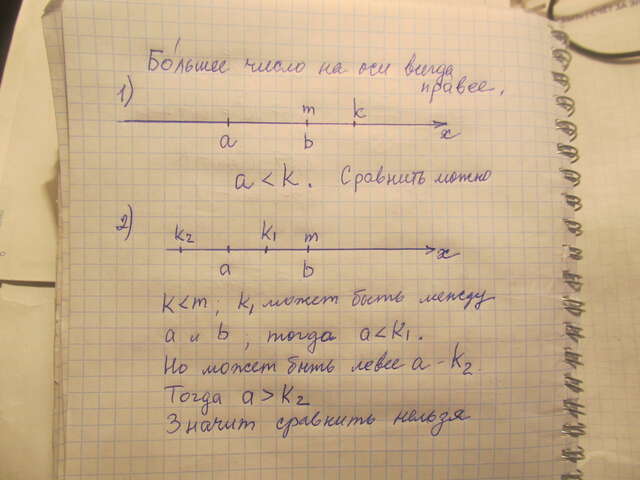 Бо́льшее число на оси всегда
правее.
1)
m k
a b x
a < k. Сравнить можно
2)
k2 k1 m
a b x
k<m; k1 может быть между
a и b, тогда a<k1.
Но может быть левее a - k2.
Тогда a > k2
Значит сравнить нельзя